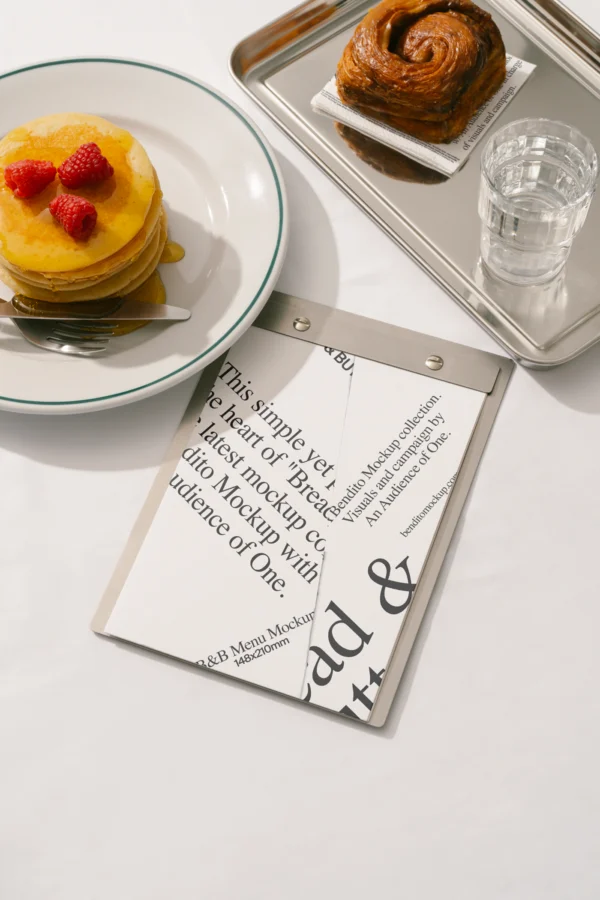 of visuals and campaign.
& BU
This simple yet
he heart of "Bread
latest mockup co
dito Mockup with
udience of One.
B&B Menu Mockup
148x210mm
Bendito Mockup collection.
Visuals and campaign by
An Audience of One.
benditomockup.com
ead &
utt